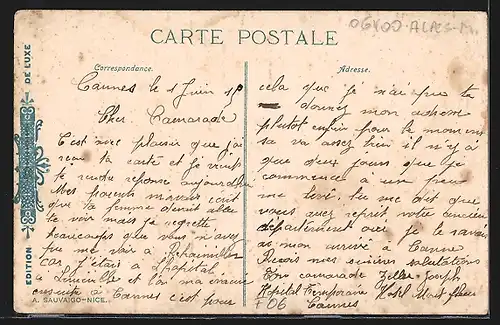 06400-ALPES-M.
CARTE POSTALE
Correspondance.
Adresse.
EDITION DE LUXE
A. SAUVAIGO-NICE.
Cannes le 1 Juin 15
Cher Camarade
C'est avec plaisir que j'ai
reçu ta carte et je veut
te rendre réponse aujourd'hui
Mes parents mavais écrit
que ta femme devait aller
te voir mais je regrette
beaucoups que vous n'avez
pue me voir à
car j'étais à l'hopital
à Luneville et l'on ma
ensuite à Cannes c'est pour
cela que je n'ai pue te
donnez mon adresse
plutôt enfin pour le moment
sa va assez bien il n'y à
que deux jours que j'ai
commencé à un peut
me levé. tu me dit que
vous avez reprit votre ancien
département ou je le savais
as mon arrivé à Cannes
Recois mes sincères salutations
Ton camarade Zeller Joseph
Hopital Temporaire Hotel Mont fleuri
+06 Cannes